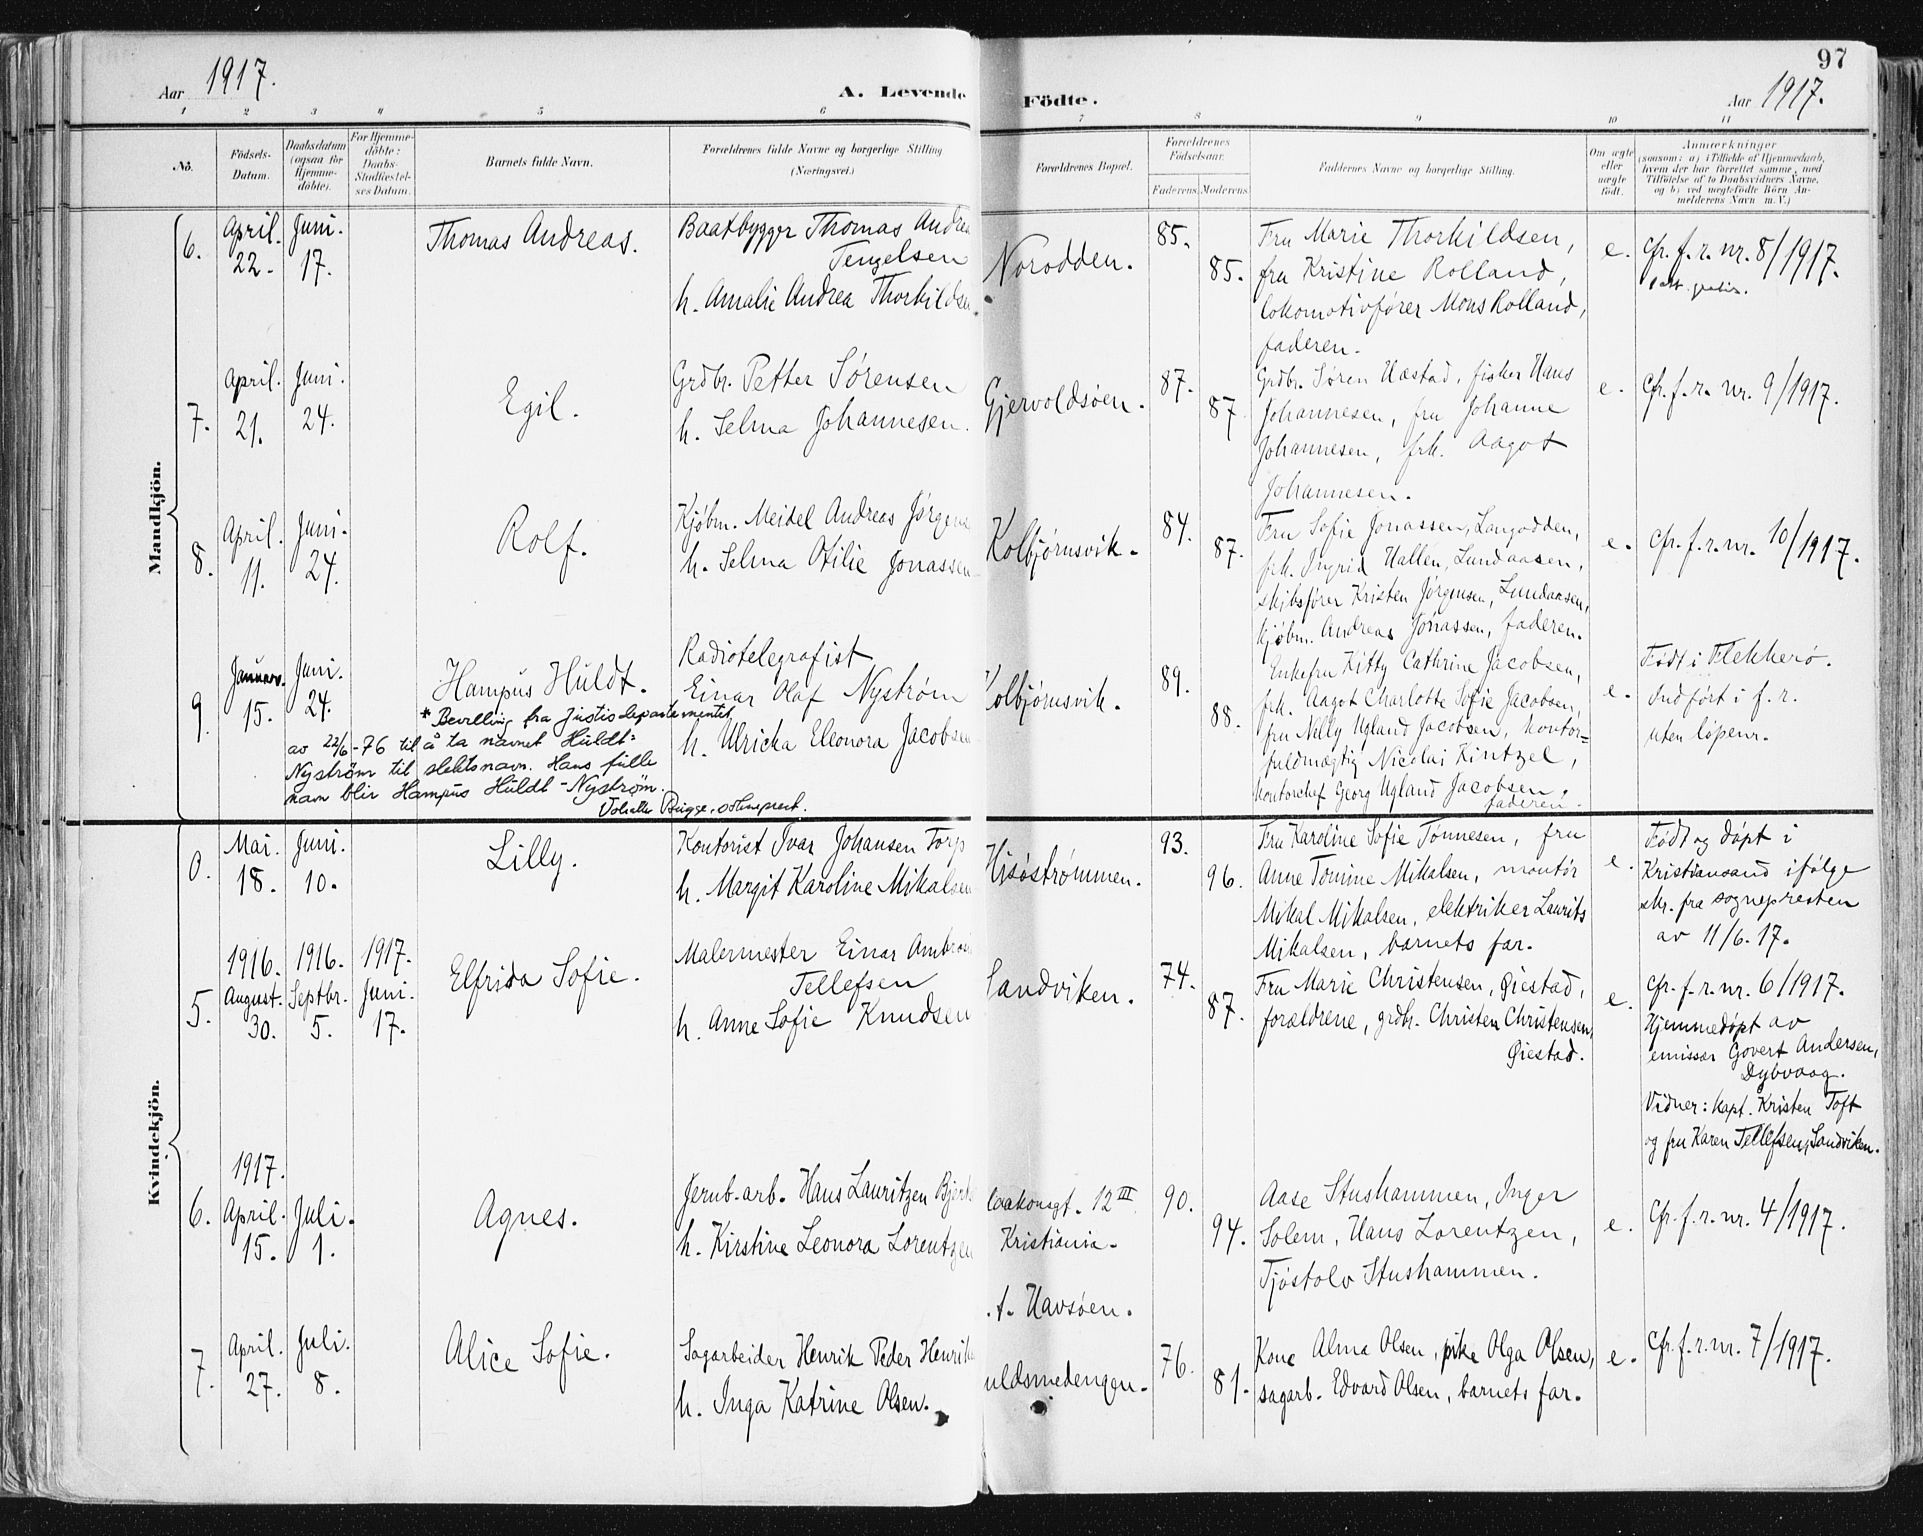 97
Aar 1917.
A. Levende Födte.
Aar 1917.
1 2 3 4 5 6 7 8 9 10 11
No.
Födsels-
Datum.
Daabsdatum
(ogsaa for
Hjemme-
döbte).
For Hjemme-
döbte:
Daabs-
Stadfæstel-
ses Datum.
Barnets fulde Navn.
Forældrenes fulde Navne og borgerlige Stilling
(Næringsvei.)
Forældrenes Bopæl.
Forældrenes
Födselsaar.
Faderens. Moderens.
Faddernes Navne og borgerlige Stilling.
Om ægte
eller
uægte
födt.
Anmærkninger
(saasom: a) i Tilfælde af Hjemmedaab,
hvem der har forrettet samme, med
Tilföielse af to Daabsvidners Navne,
og b) ved uægtefödte Börn An-
melderens Navn m. V.)
Mandkjön.
6.
April.
22.
Juni.
17.
Thomas Andreas.
Baatbygger Thomas Andrea
Tengelsen
h. Amalie Andrea Thorkildsen
Norodden.
85.
85.
Fru Marie Thorkildsen,
fru Kristine Rolland,
lokomotivfører Mons Rolland,
faderen.
e.
cfr. f. r. nr. 8/1917.
1 att. gratis.
7.
April.
21.
Juni.
24.
Egil.
Grdbr. Petter Sørensen
h. Selma Johannesen.
Gjervoldsøen.
87.
87.
Grdbr. Søren Næstad, fisker Hans
Johannesen, fru Johanne
Johannesen, frk. Aagot
Johannesen.
e.
Cfr. f. r. nr. 9/1917.
8.
April.
11.
Juni.
24.
Rolf.
Kjøbm. Meidel Andreas Jørgens
h. Selma Otilie Jonassen
Kolbjørnsvik.
84.
87.
Fru Sofie Jonassen, Langodden,
frk. Ingrid Hallén, Lundaasen,
skibsfører Kristen Jørgensen, Lundaasen,
kjøbm. Andreas Jonassen, faderen.
e.
cfr. f. r. nr. 10/1917.
9.
Januar.
15.
Juni.
24.
Hampus Huldt.
Radiotelegrafist
Einar Olaf Nystrøm
h. Ulricka Eleonora Jacobsen
* Bevilling fra Justisdepartementet
av 22/6-76 til å ta navnet Huldt-
Nystrøm til slektsnavn. Hans fulle
navn blir Hampus Huldt-Nystrøm.
Kolbjørnsvik.
89.
88.
Enkefru Kitty Cathrine Jacobsen,
frk. Aagot Charlotte Sofie Jacobsen,
fru Nelly Ugland Jacobsen, kontor-
fuldmægtig Nicolai Kintzel,
kontorchef Georg Ugland Jacobsen,
faderen.
e.
Født i Flekkerø.
Indført i f. r.
uten løpenr.
Kvindekjön.
0.
Mai.
18.
Juni.
10.
Lilly.
Kontorist Ivar Johansen Torp
h. Margit Karoline Mikalsen
Hisøstrømmen.
93.
96.
Fru Karoline Sofie Tønnesen, fru
Anne Tomine Mikalsen, montør
Mikal Mikalsen, elektriker Laurits
Mikalsen, barnets far.
e.
Født og døpt i
Kristiansand ifølge
skr. fra sognepresten
av 11/6. 17.
5.
1916.
August.
30.
1916.
Septbr.
5.
1917.
Juni.
17.
Elfrida Sofie.
Malermester Einar Ambrosi
Tellefsen
h. Anne Sofie Knudsen
Sandviken.
74.
87.
Fru Marie Christensen, Øiestad,
forældrene, grdbr. Christen Christensen,
Øiestad.
e.
cfr. f. r. nr. 6/1917.
Hjemmedøpt av
emissær Govert Andersen,
Dybvaag.
Vidner: kapt. Kristen Toft
og fru Karen Tellefsen, Sandviken.
6.
1917.
April.
15.
Juli.
1.
Agnes.
Jernb. arb. Hans Lauritzen
h. Kirstine Leonora Lorentzen
12 III
Kristiania.
.t. Havsøen.
90.
94.
Aase Stushammen, Inger
Solem, Hans Lorentzen,
Tjøstolv Stushammen.
e.
Cfr. f. r. nr. 4/1917.
7.
April.
27.
Juli.
8.
Alice Sofie.
Sagarbeider Henrik Peder Henrik
h. Inga Katrine Olsen.
uldsmedengen.
76.
81.
Kone Alma Olsen, pike Olga Olsen,
sagarb. Edvard Olsen, barnets far.
e.
Cfr. f. r. nr. 7/1917.